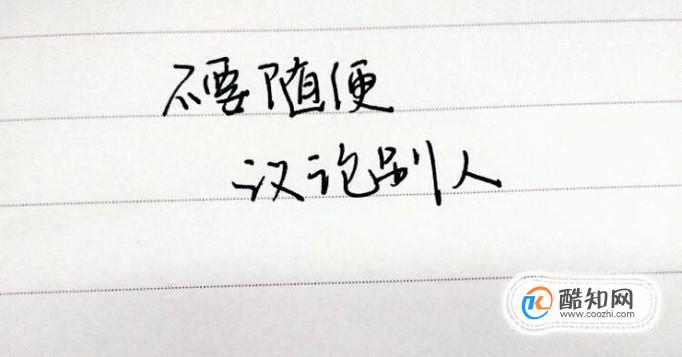 不要随便
议论别人
酷知网
www.coozhi.com